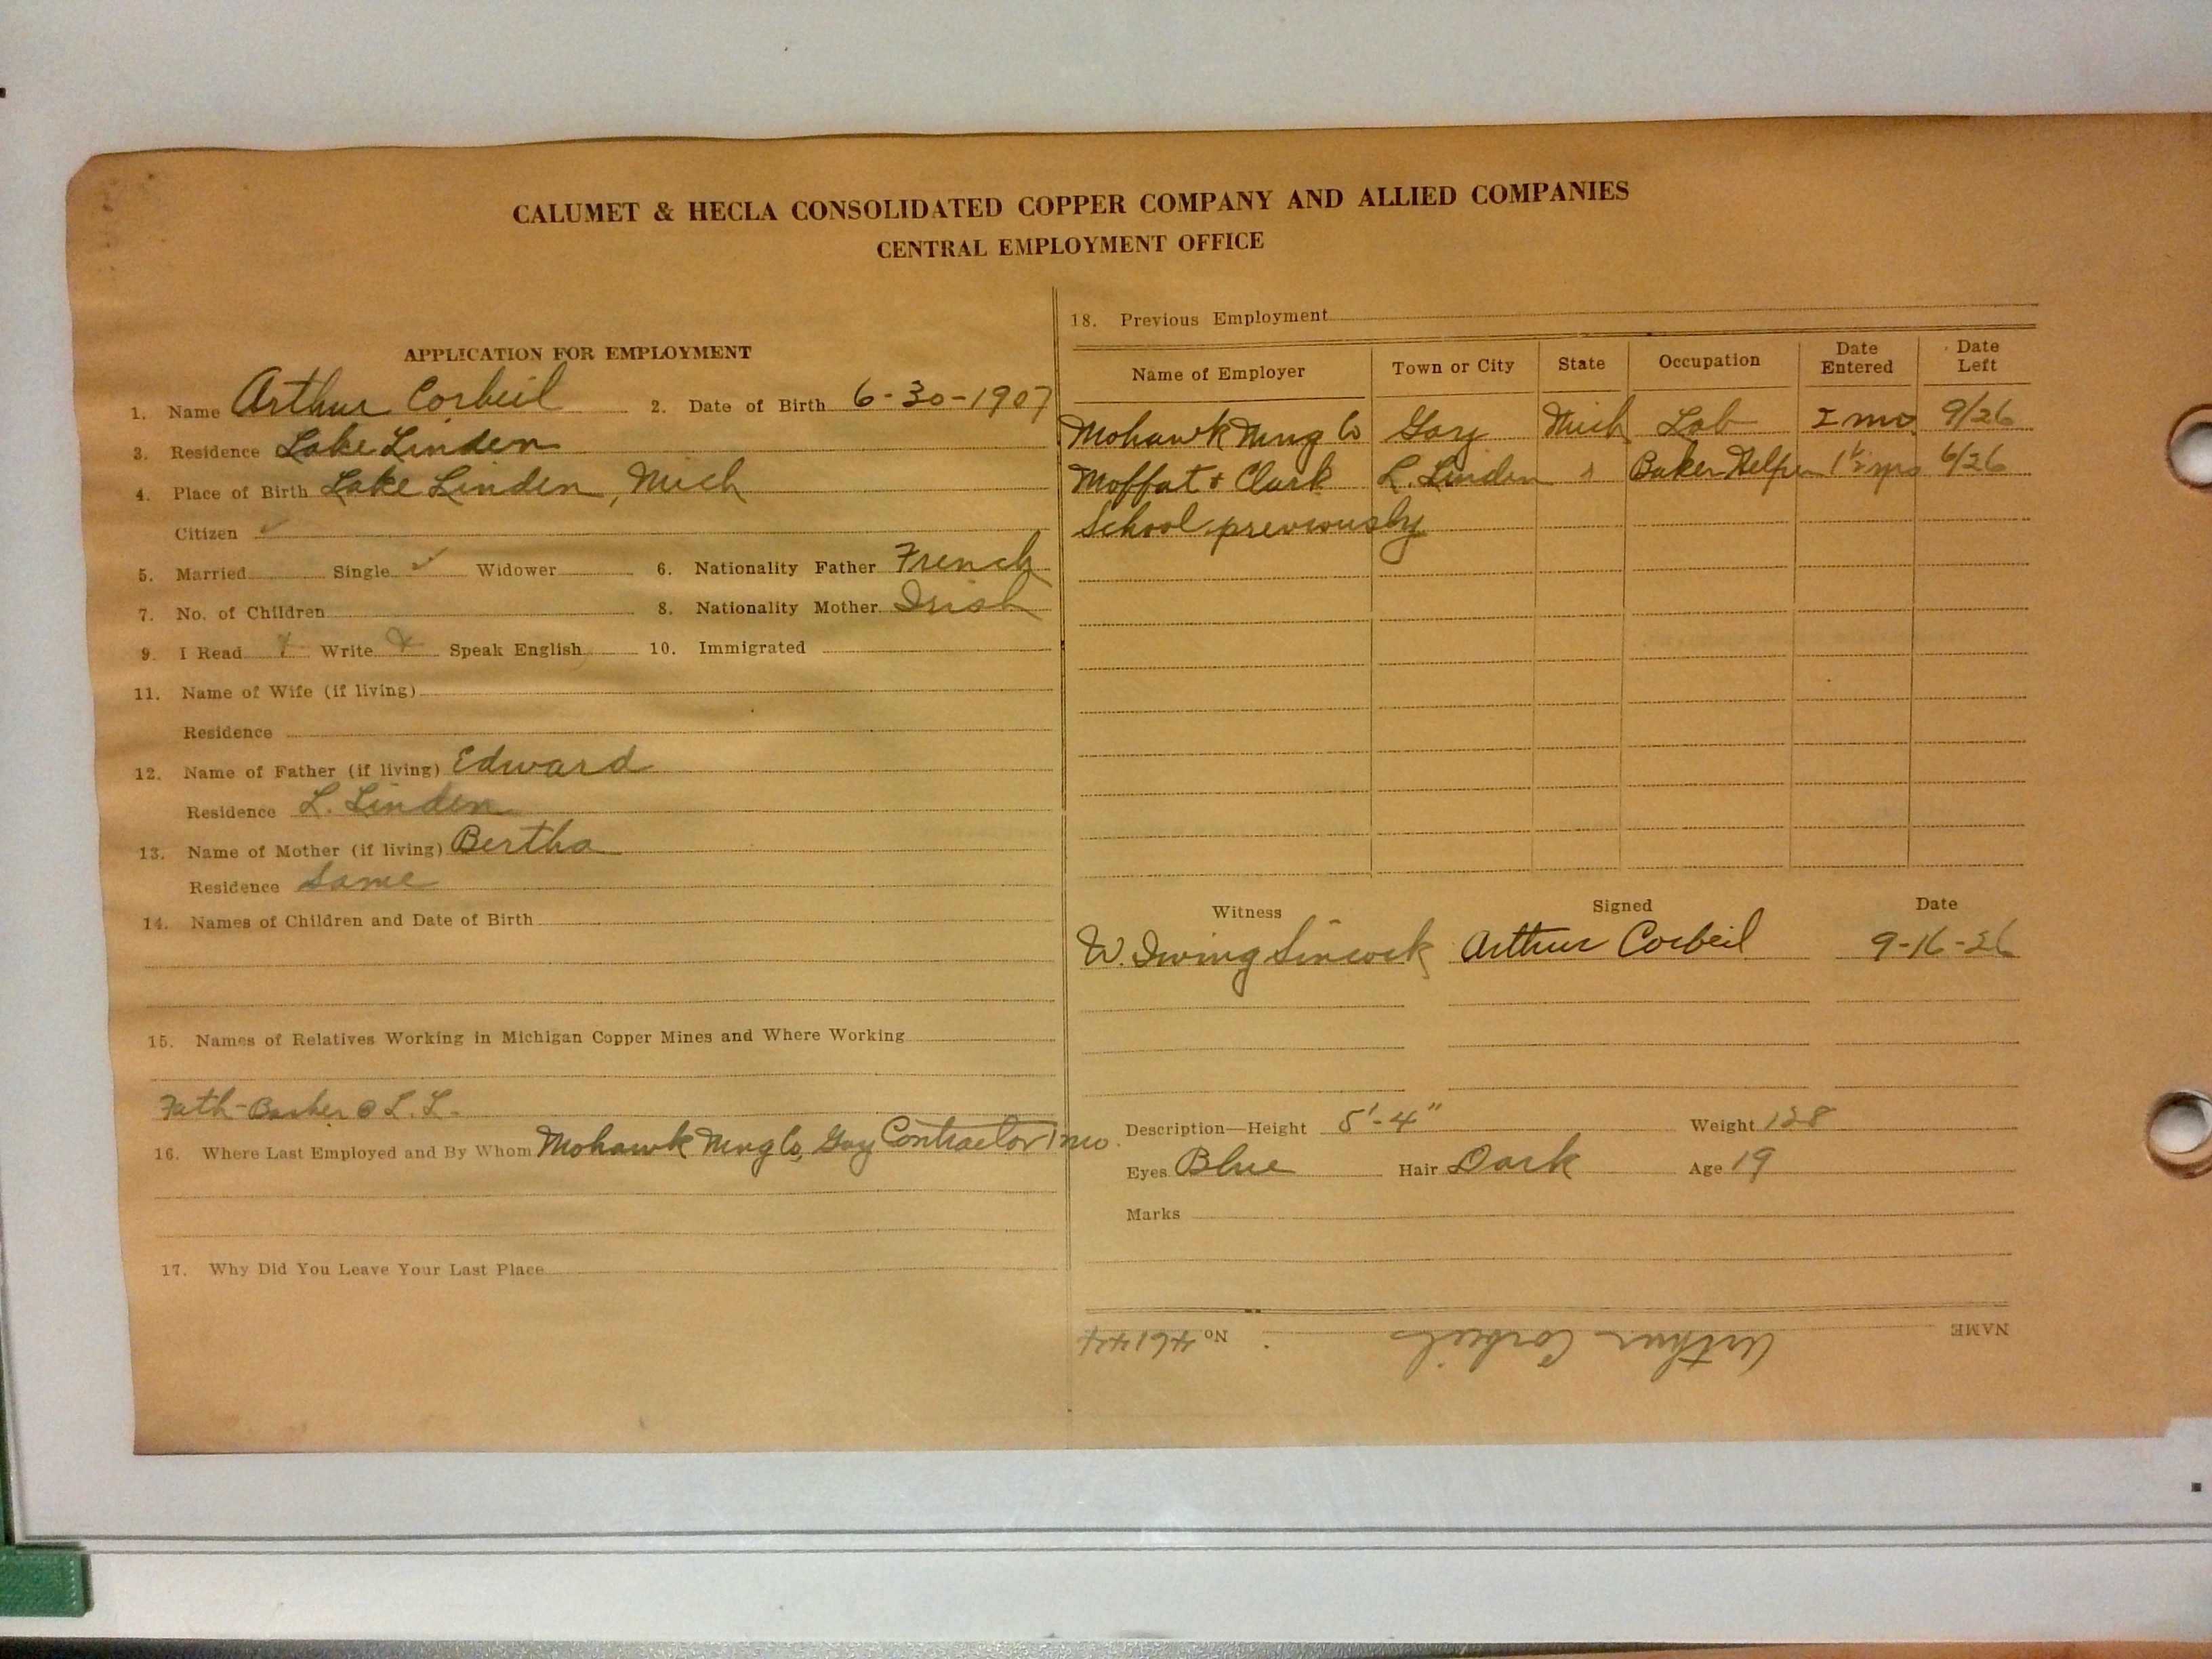 CALUMET & HECLA CONSOLIDATED COPPER COMPANY AND ALLIED COMPANIES
CENTRAL EMPLOYMENT OFFICE
APPLICATION FOR EMPLOYMENT
1. Name Arthur Corbeil 2. Date of Birth 6-30-1907
3. Residence Lake Linden
4. Place of Birth Lake Linden, Mich
Citizen ✓
5. Married Single ✓ Widower 6. Nationality Father French
7. No. of Children 8. Nationality Mother Irish
9. I Read Write Speak English 10. Immigrated
11. Name of Wife (if living)
Residence
12. Name of Father (if living) Edward
Residence L. Linden
13. Name of Mother (if living) Bertha
Residence Same
14. Names of Children and Date of Birth
15. Names of Relatives Working in Michigan Copper Mines and Where Working
Fath- @ L. L.
16. Where Last Employed and By Whom Mohawk Mng Co, Gay Contractor 1 mo.
17. Why Did You Leave Your Last Place
18. Previous Employment
Name of Employer Town or City State Occupation Date Entered Date Left
Mohawk Mng Co Gay Mich Lab mo 9/26
Moffat & Clark L. Linden Baker Helper 1½ yrs 6/26
School previously
Witness Signed Date
W. Irving Sincock Arthur Corbeil 9-16-26
Description—Height 5'-4" Weight 128
Eyes Blue Hair Dark Age 19
Marks
NAME Arthur Corbeil No 46144